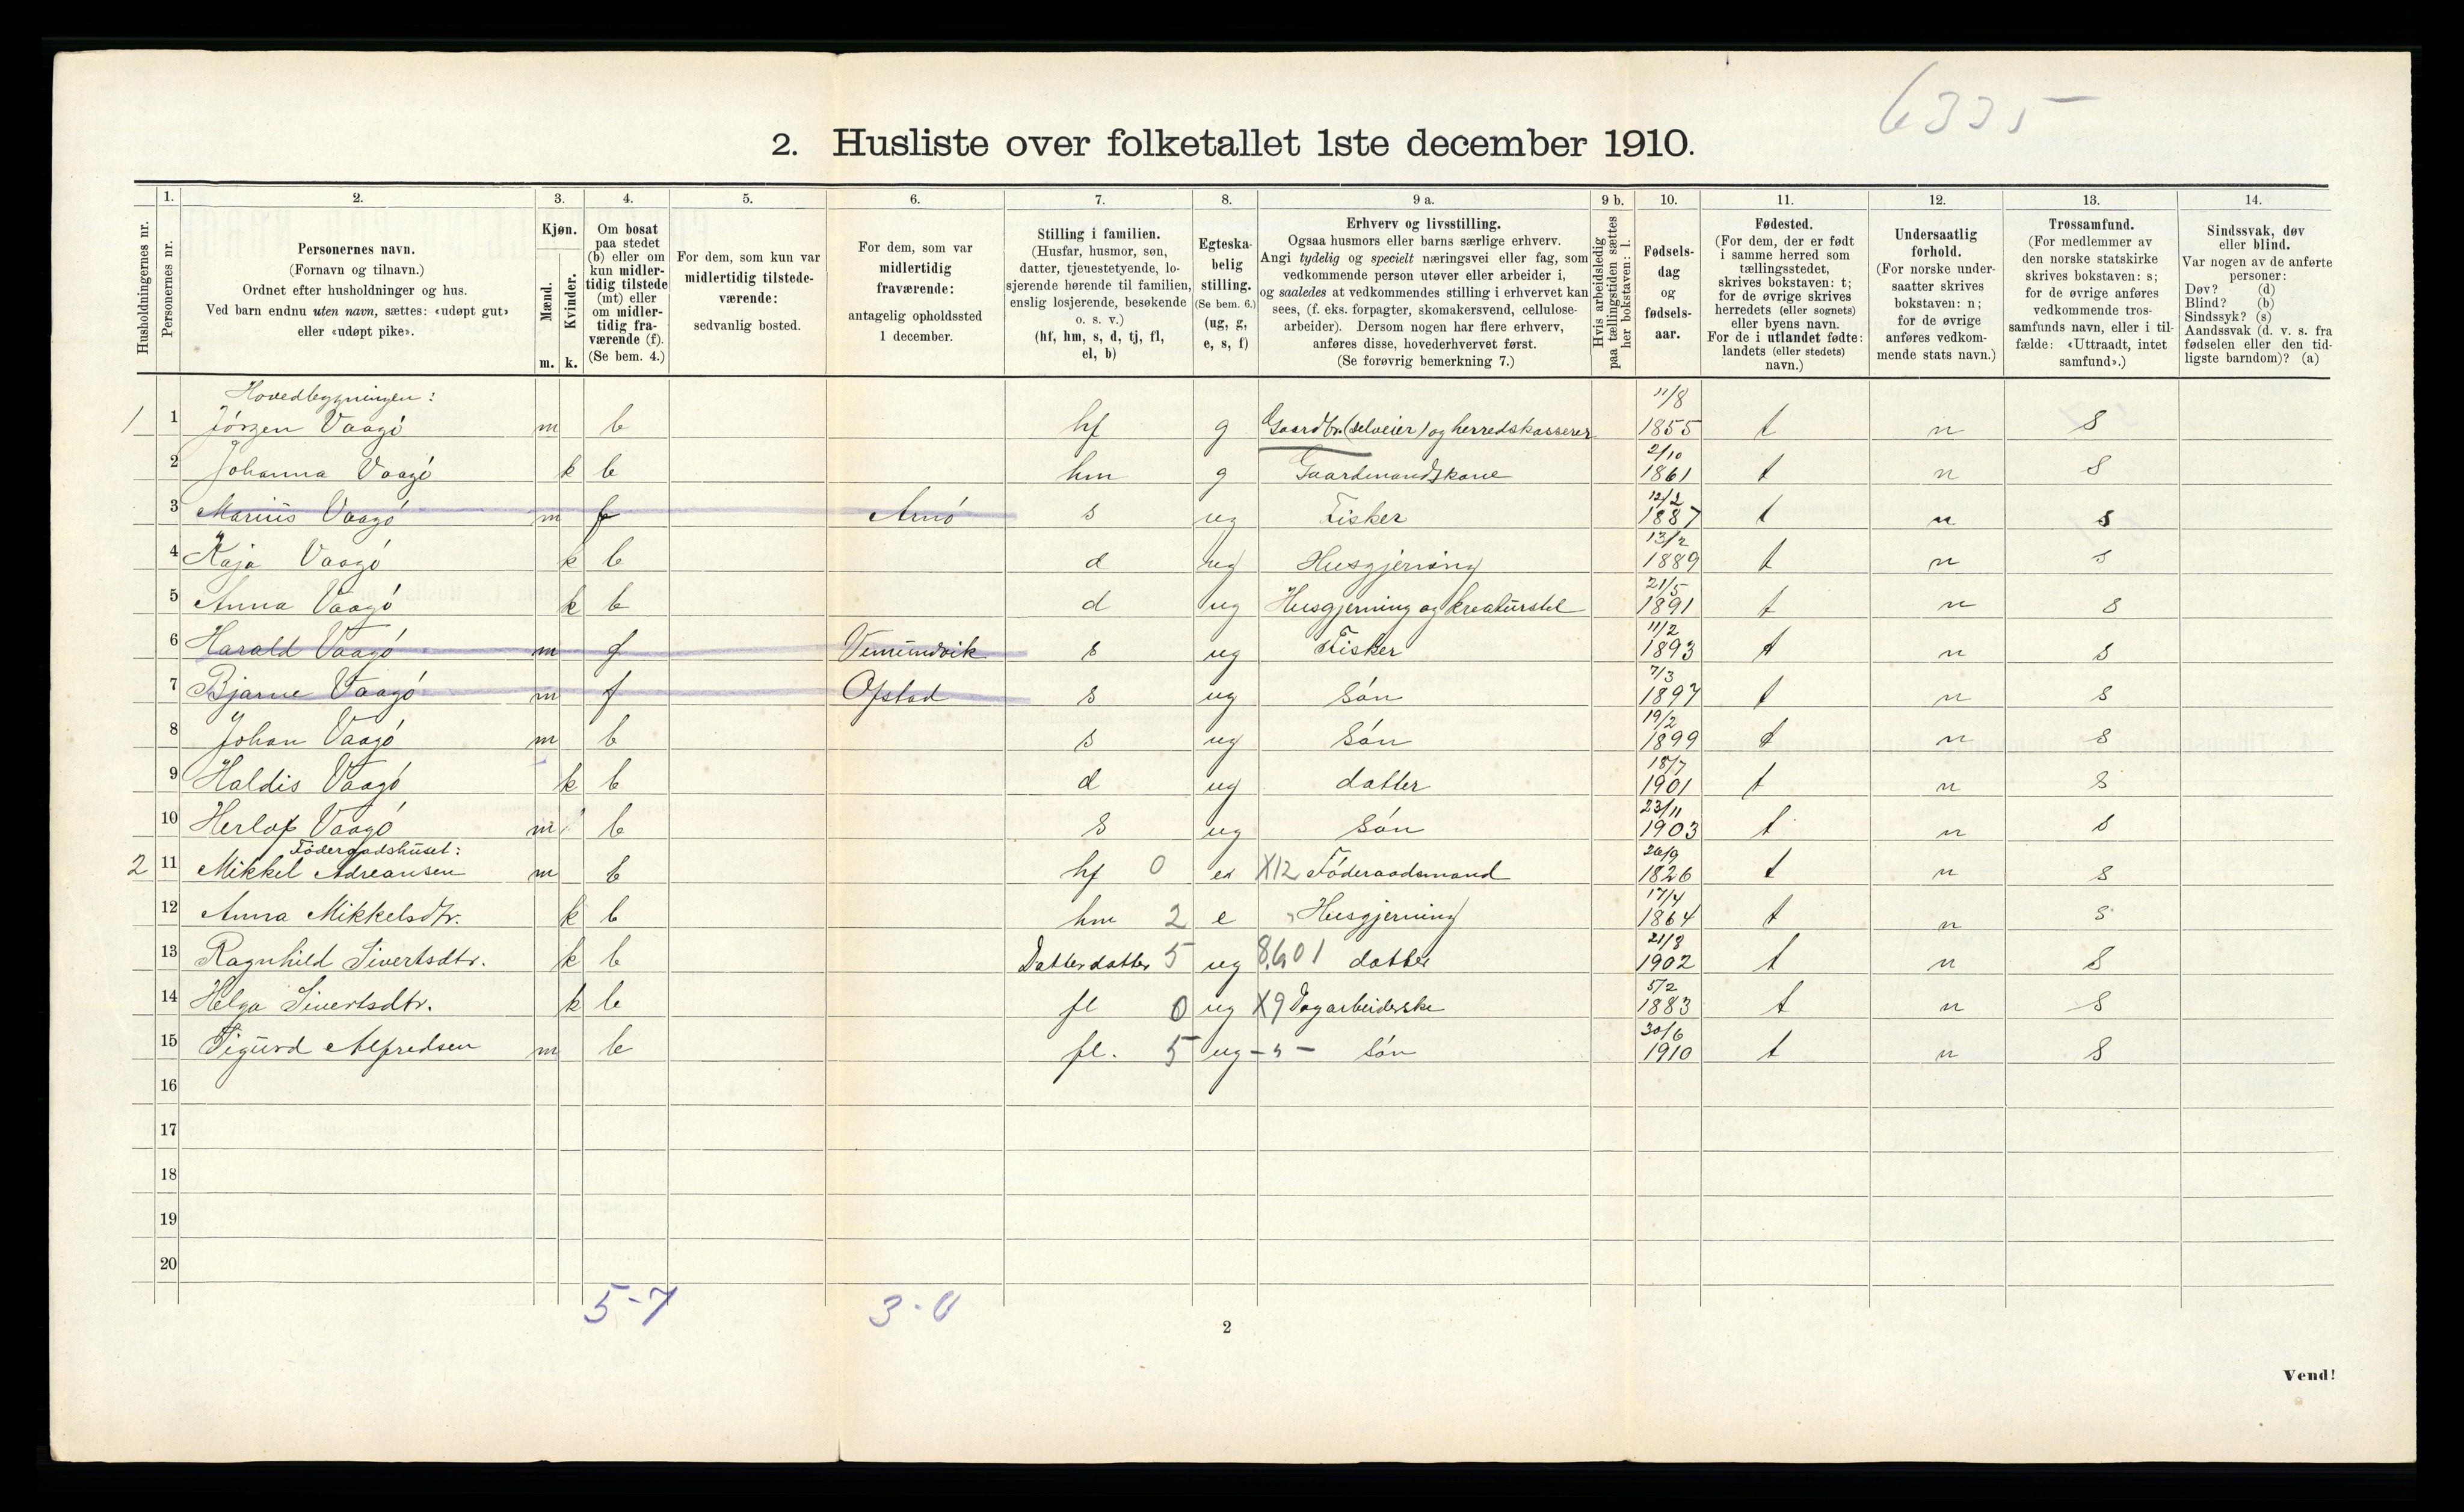 6335
2. Husliste over folketallet 1ste december 1910.
1. 2. 3. 4. 5. 6. 7. 8. 9 a. 9 b. 10. 11. 12. 13. 14.
Husholdningernes nr.
Personernes nr.
Personernes navn.
(Fornavn og tilnavn.)
Ordnet efter husholdninger og hus.
Ved barn endnu uten navn, sættes: «udøpt gut»
eller «udøpt pike».
Kjøn.
Mænd.
m.
Kvinder.
k.
Om bosat
paa stedet
(b) eller om
kun midler-
tidig tilstede
(mt) eller
om midler-
tidig fra-
værende (f).
(Se bem. 4.)
For dem, som kun var
midlertidig tilstede-
værende:
sedvanlig bosted.
For dem, som var
midlertidig
fraværende:
antagelig opholdssted
1 december.
Stilling i familien.
(Husfar, husmor, søn,
datter, tjenestetyende, lo-
sjerende hørende til familien,
enslig losjerende, besøkende
o. s. v.)
(hf, hm, s, d, tj, fl,
el, b)
Egteska-
belig
stilling.
(Se bem. 6.)
(ug, g,
e, s, f)
Erhverv og livsstilling.
Ogsaa husmors eller barns særlige erhverv.
Angi tydelig og specielt næringsvei eller fag, som
vedkommende person utøver eller arbeider i,
og saaledes at vedkommendes stilling i erhvervet kan
sees, (f. eks. forpagter, skomakersvend, cellulose-
arbeider). Dersom nogen har flere erhverv,
anføres disse, hovederhvervet først.
(Se forøvrig bemerkning 7.)
Hvis arbeidsledig
paa tællingstiden sættes
her bokstaven: l.
Fødsels-
dag
og
fødsels-
aar.
Fødested.
(For dem, der er født
i samme herred som
tællingsstedet,
skrives bokstaven: t;
for de øvrige skrives
herredets (eller sognets)
eller byens navn.
For de i utlandet fødte:
landets (eller stedets)
navn.)
Undersaatlig
forhold.
(For norske under-
saatter skrives
bokstaven: n;
for de øvrige
anføres vedkom-
mende stats navn.)
Trossamfund.
(For medlemmer av
den norske statskirke
skrives bokstaven: s;
for de øvrige anføres
vedkommende tros-
samfunds navn, eller i til-
fælde: «Uttraadt, intet
samfund».)
Sindssvak, døv
eller blind.
Var nogen av de anførte
personer:
Døv? (d)
Blind? (b)
Sindssyk? (s)
Aandssvak (d. v. s. fra
fødselen eller den tid-
ligste barndom)? (a)
Hovedbygningen:
1 1 Jörgen Vaagó m b hf g Gaardbr. (selveier) og herredskasserer 11/8 1855 t n s
2 Johanna Vaagó k b hm g Gaardmandskone 2/10 1861 t n s
3 Marius Vaagó m f Arnó s ug Fisker 12/2 1887 t n s
4 Kaja Vaagó k b d ug Husgjerning 13/2 1889 t n s
5 Anna Vaagó k b d ug Husgjerning og kreaturstel 21/5 1891 t n s
6 Harald Vaagó m f Vemundvik s ug Fisker 11/2 1893 t n s
7 Bjarne Vaagó m f Opstad s ug Són 7/3 1897 t n s
8 Johan Vaagó m b s ug Són 19/2 1899 t n s
9 Haldis Vaagó k b d ug datter 18/7 1901 t n s
10 Herlof Vaagó m b s ug Són 23/11 1903 t n s
Föderaadshuset:
2 11 Mikkel Adreansen m b hf 0 e X12 Föderaadsmand 26/9 1826 t n s
12 Anna Mikkelsdtr. k b hm 2 e Husgjerning 17/4 1864 t n s
13 Ragnhild Sivertsdtr. k b Datterdatter 5 ug datter 21/8 1902 t n s
14 Helga Sivertsdtr. k b fl 0 ug X9 Dagarbeiderske 5/2 1883 t n s
15 Sigurd Alfredsen m b fl. 5 ug Són 30/6 1910 t n s
16
17
18
19
20
5-7 3-0
2
Vend!